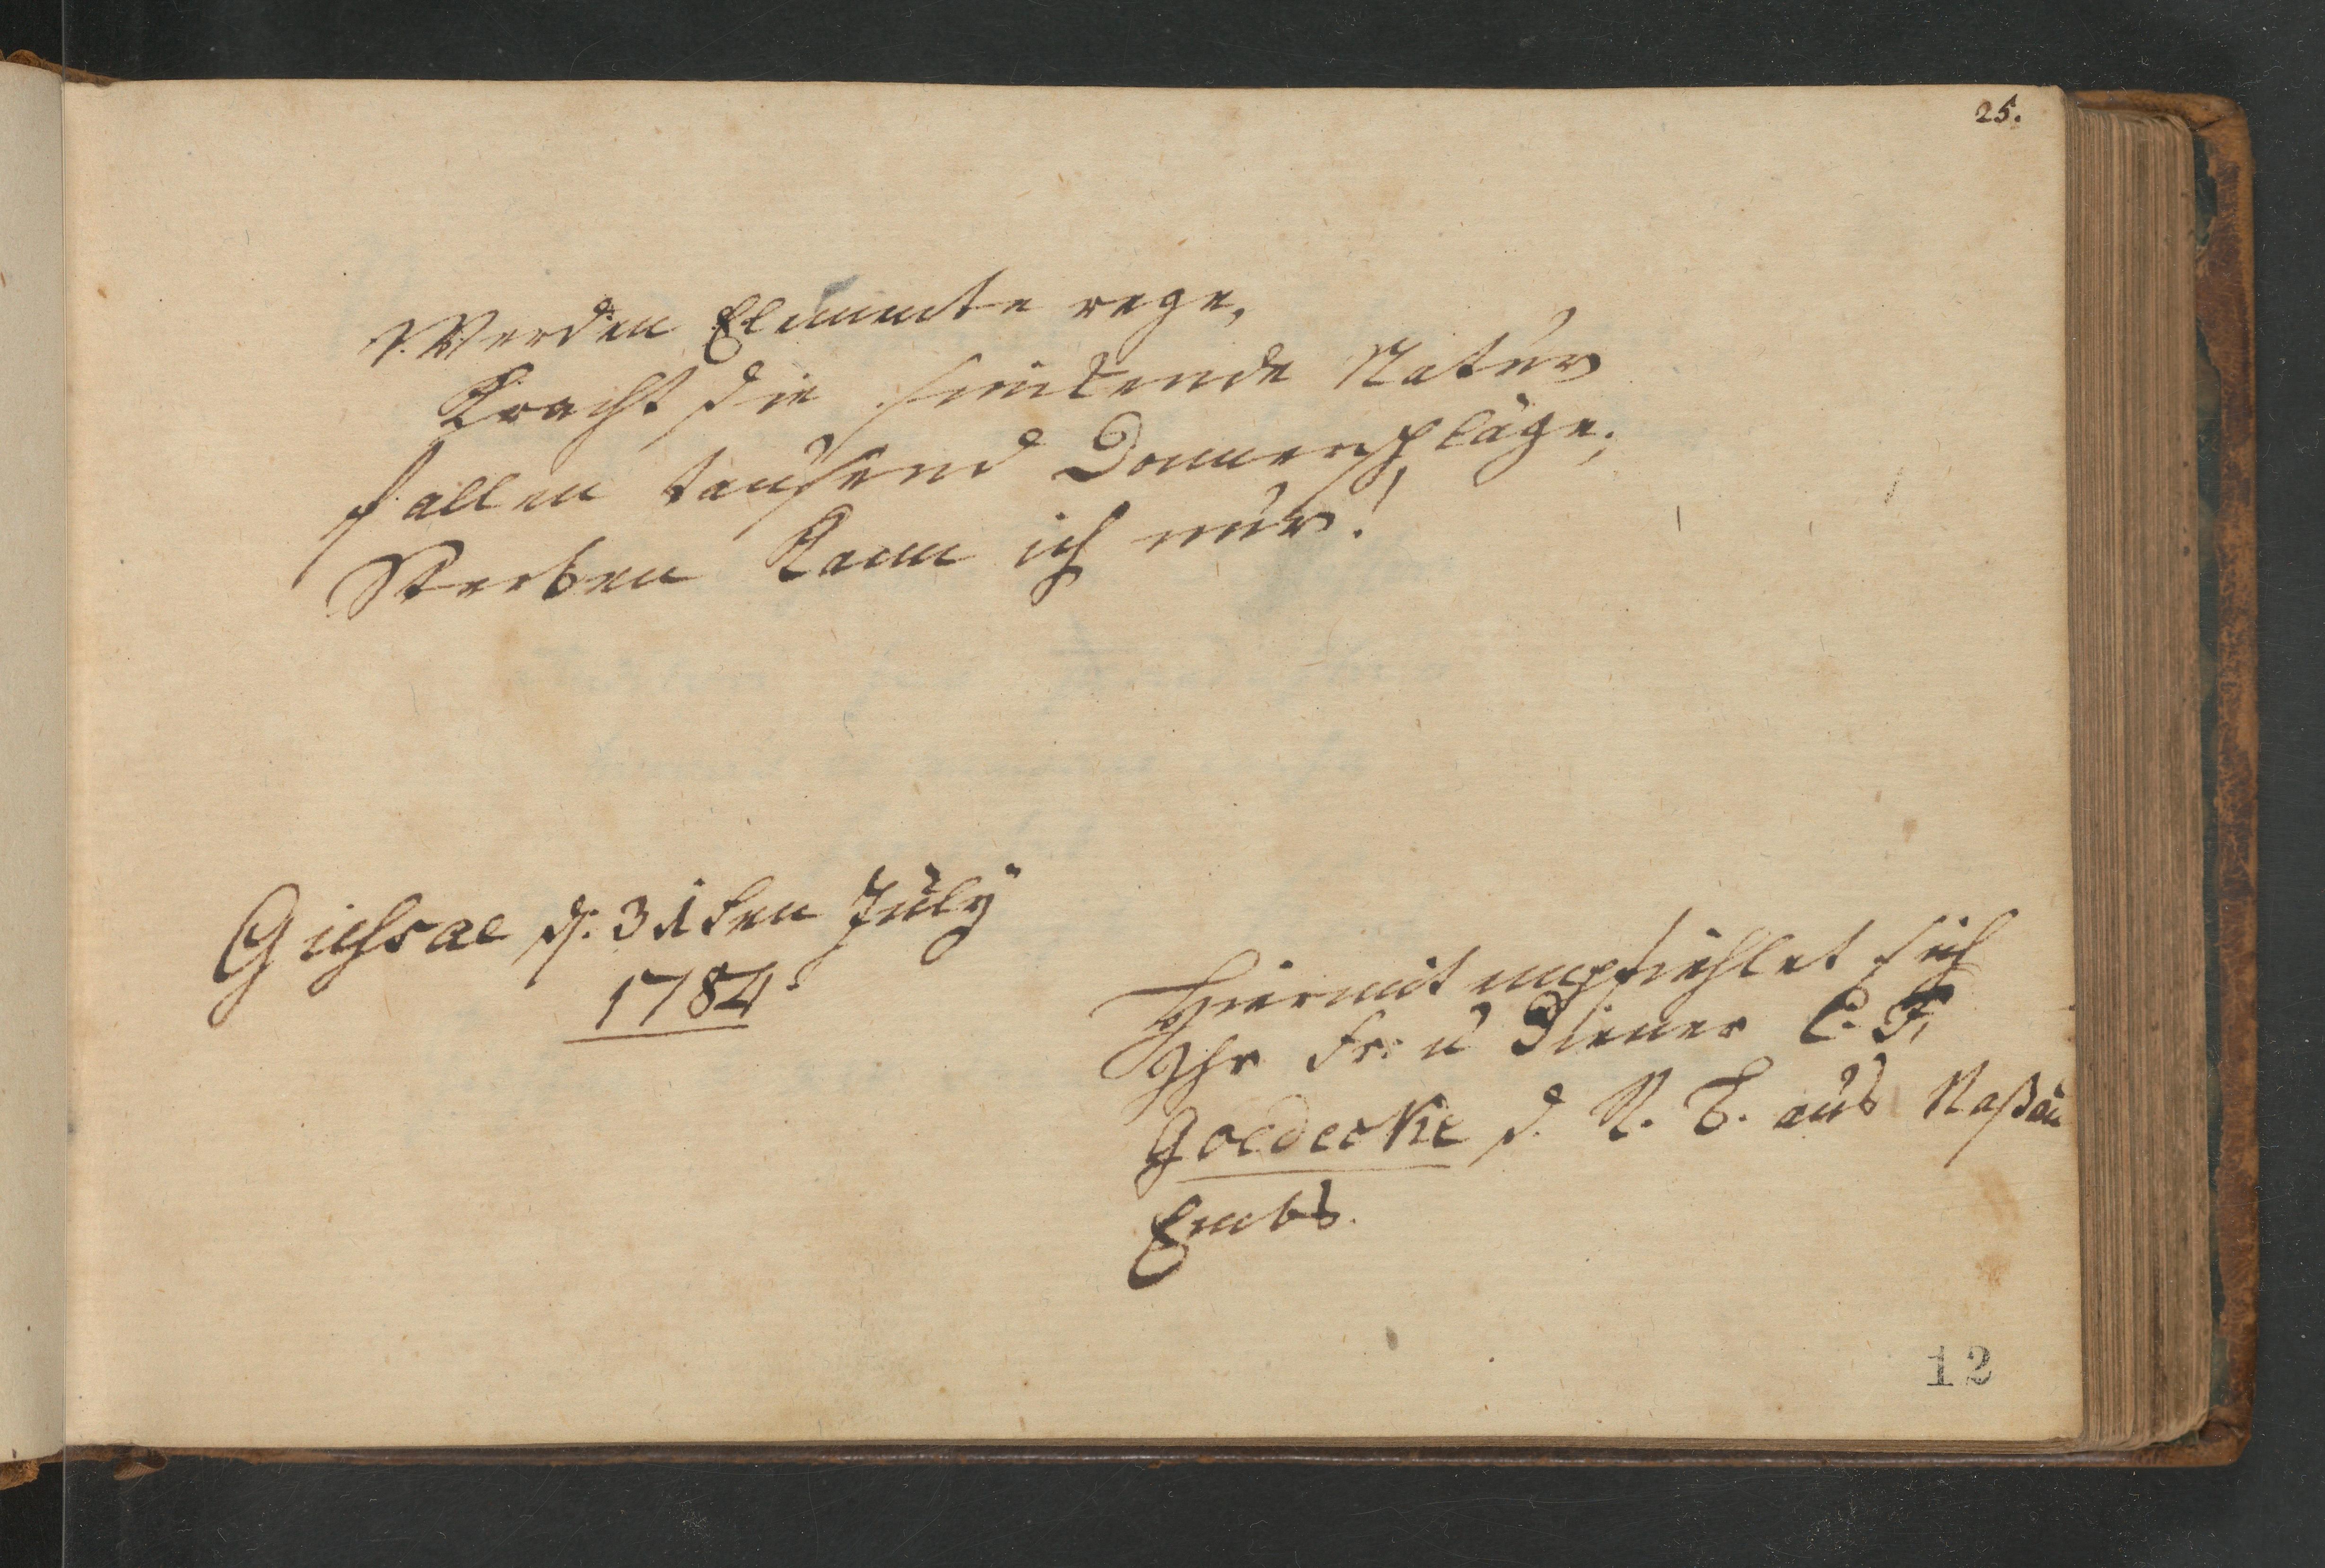 25.
Werden Elemente rege,
Kracht die sinkende Natur
fallen tausend Donnerschläge;
Sterben kann ich nur!
Giessae d. 31ten July
1784.
Hiermit empfiehlet sich
Ihr Fr. u Diener C. F.
Goedecke d. R. B. aus Naßau
Embs.
12